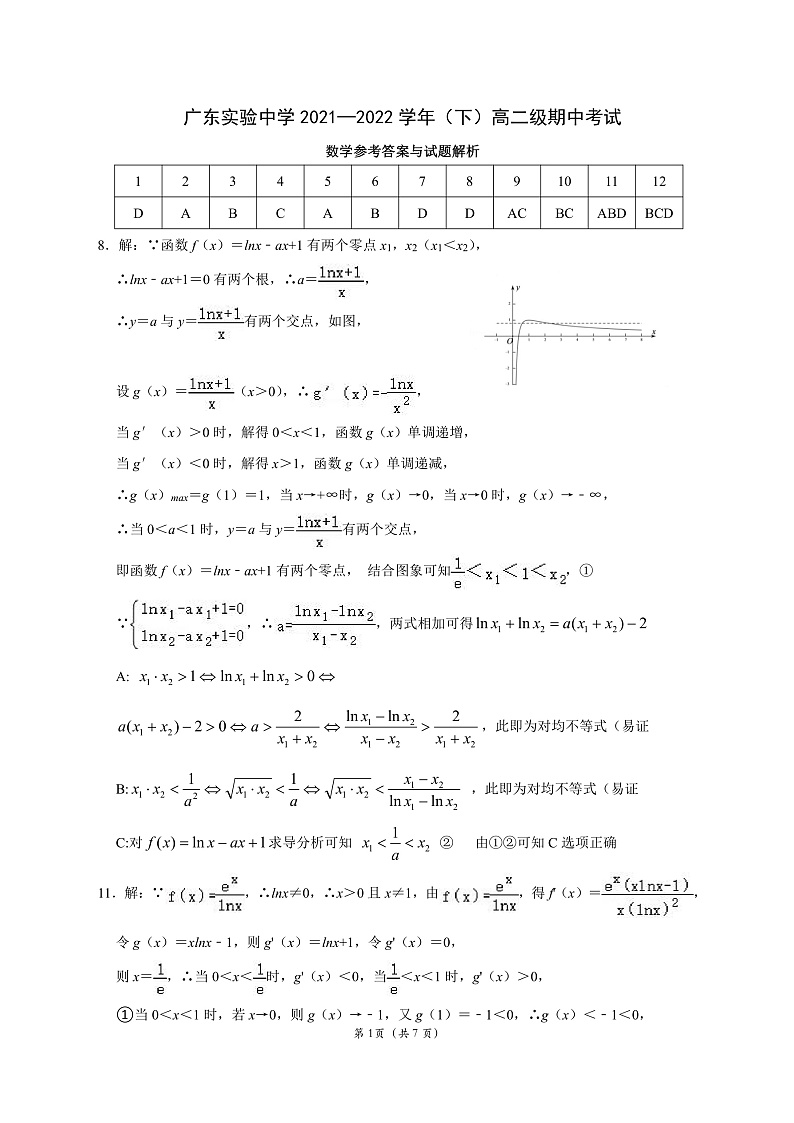 广东实验中学 2021—2022 学年（下）高二级期中考试
数学参考答案与试题解析
1 2 3 4 5 6 7 8 9 10 11 12
D A B C A B D D AC BC ABD BCD
8．解：∵函数 f（x）＝lnx﹣ax+1 有两个零点 x₁，x₂（x₁＜x₂），
∴lnx﹣ax+1＝0 有两个根，∴a＝(lnx+1)/x，
∴y＝a 与 y＝(lnx+1)/x 有两个交点，如图，
设 g（x）＝(lnx+1)/x（x＞0），∴g′（x）=-lnx/x²，
当 g′（x）＞0 时，解得 0＜x＜1，函数 g（x）单调递增，
当 g′（x）＜0 时，解得 x＞1，函数 g（x）单调递减，
∴g（x）max＝g（1）＝1，当 x→+∞时，g（x）→0，当 x→0 时，g（x）→﹣∞，
∴当 0＜a＜1 时，y＝a 与 y＝(lnx+1)/x 有两个交点，
即函数 f（x）＝lnx﹣ax+1 有两个零点， 结合图象可知 1/e＜x₁＜1＜x₂，①
∵{lnx₁-ax₁+1=0 lnx₂-ax₂+1=0，∴a=(lnx₁-lnx₂)/(x₁-x₂)，两式相加可得 ln x₁ + ln x₂ = a(x₁ + x₂) − 2
A: x₁ · x₂ > 1 ⇔ ln x₁ + ln x₂ > 0 ⇔
a(x₁ + x₂) − 2 > 0 ⇔ a > 2/(x₁ + x₂) ⇔ (ln x₁ − ln x₂)/(x₁ − x₂) > 2/(x₁ + x₂)，此即为对均不等式（易证
B: x₁ · x₂ < 1/a² ⇔ √(x₁ · x₂) < 1/a ⇔ √(x₁ · x₂) < (x₁ − x₂)/(ln x₁ − ln x₂) ，此即为对均不等式（易证
C:对 f(x) = ln x − ax + 1 求导分析可知 x₁ < 1/a < x₂ ② 由①②可知 C 选项正确
11．解：∵f(x)=eˣ/lnx，∴lnx≠0，∴x＞0 且 x≠1，由 f(x)=eˣ/lnx，得 f′（x）＝eˣ(xlnx-1)/(x(lnx)²)，
令 g（x）＝xlnx﹣1，则 g'（x）＝lnx+1，令 g'（x）＝0，
则 x＝1/e，∴当 0＜x＜1/e 时，g'（x）＜0，当 1/e＜x＜1 时，g'（x）＞0，
①当 0＜x＜1 时，若 x→0，则 g（x）→﹣1，又 g（1）＝﹣1＜0，∴g（x）＜﹣1＜0，
第 1页（共 7 页）